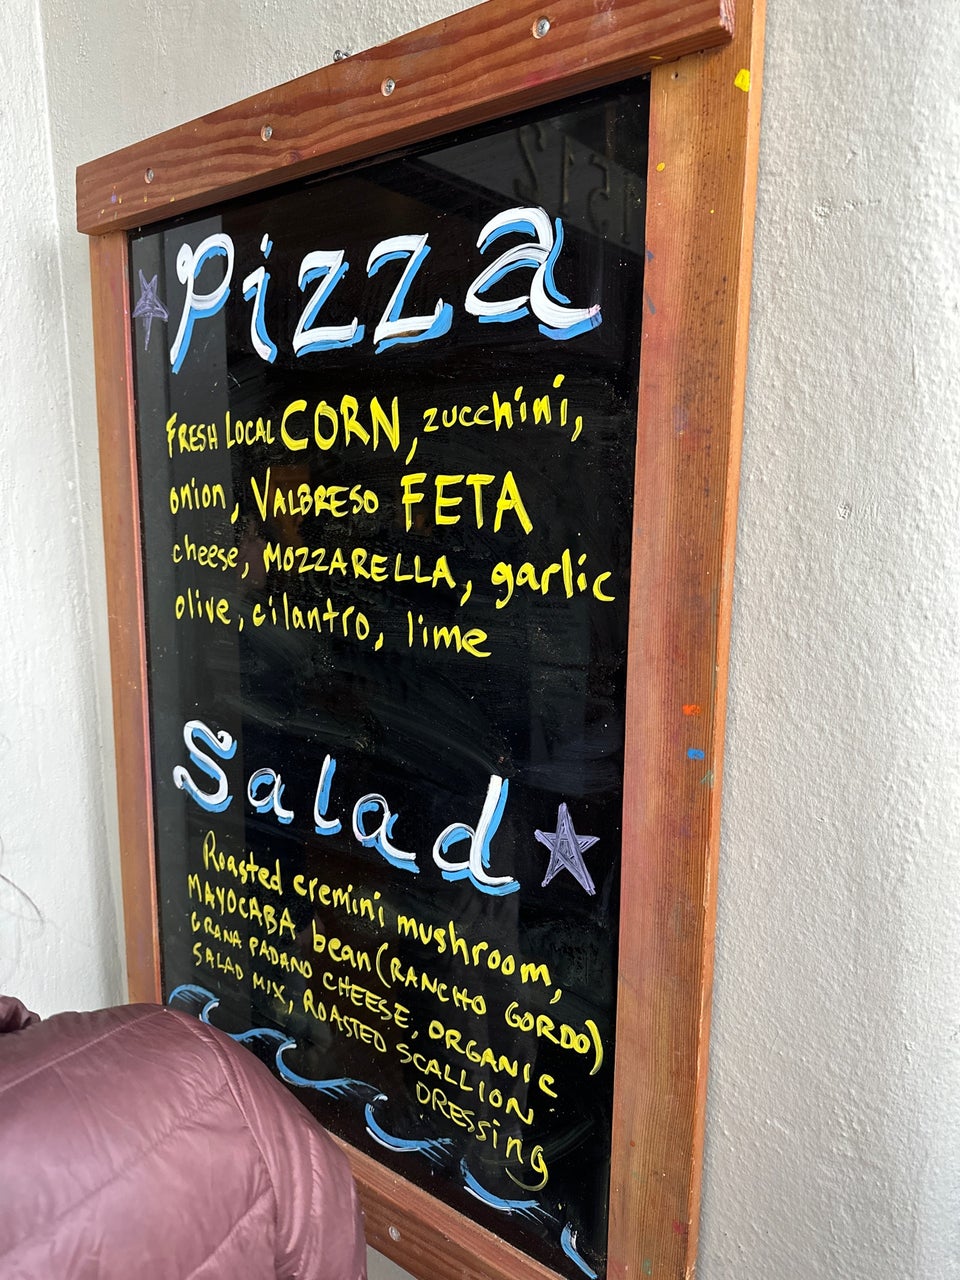 1512
Pizza
FRESH LOCAL CORN, zucchini,
onion, VALBRESO FETA
cheese, MOZZARELLA, garlic
olive, cilantro, lime
Salad
Roasted cremini mushroom,
MAYOCABA bean (RANCHO GORDO)
GRANA PADANO CHEESE, ORGANIC
SALAD MIX, ROASTED SCALLION
DRESSing